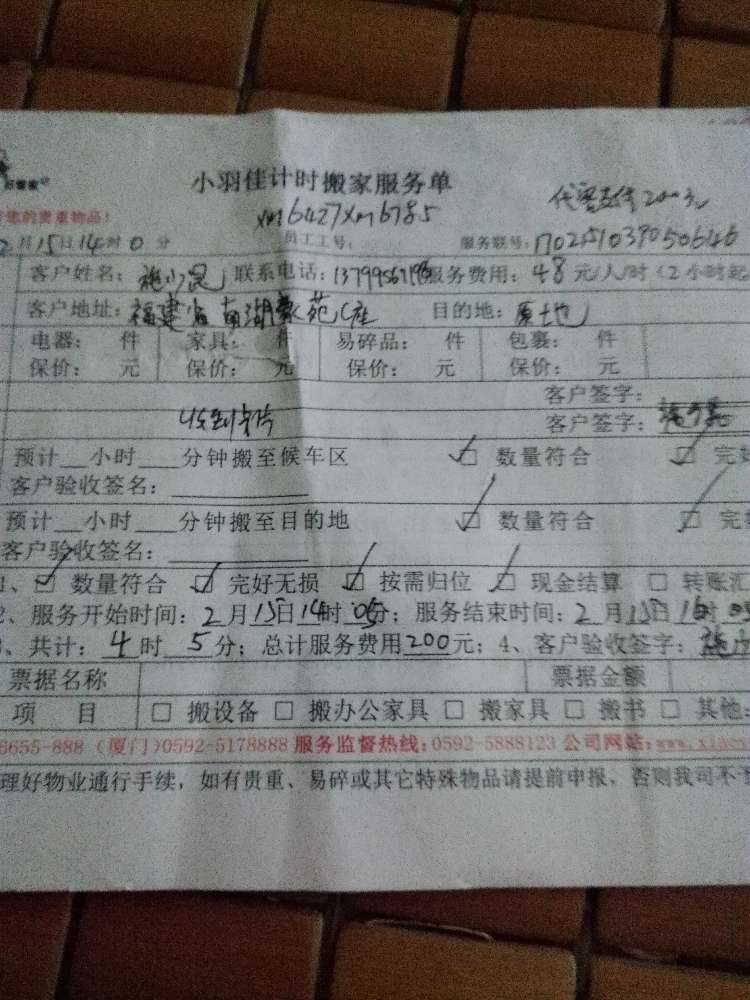 小羽佳计时搬家服务单
您的贵重物品！
xm6427xm6785
2月15日14时0分 员工工号： 服务联号：
客户姓名： 联系电话： 服务费用：48元/人/时（2小时起
客户地址：福建省南湖 苑C座 目的地：原地
电器： 件 家具： 件 易碎品： 件 包裹： 件
保价： 元 保价： 元 保价： 元 保价： 元
客户签字：
收到卡片 客户签字：
预计__小时___分钟搬至候车区 ☑ 数量符合 ☑ 完好
客户验收签名：
预计__小时___分钟搬至目的地 ☑ 数量符合 ☑ 完
客户验收签名：
1、☑ 数量符合 ☑ 完好无损 ☑ 按需归位 ☑ 现金结算 □ 转账汇
2、服务开始时间：2月15日14时05分；服务结束时间：2月15日16时05
、共计：4时5分；总计服务费用200元；4、客户验收签字：
票据名称 票据金额
项目 □ 搬设备 □ 搬办公家具 □ 搬家具 □ 搬书 □ 其他：
6655-888（厦门）0592-5178888 服务监督热线：0592-5888123 公司网站：
理好物业通行手续，如有贵重、易碎或其它特殊物品请提前申报，否则我司不